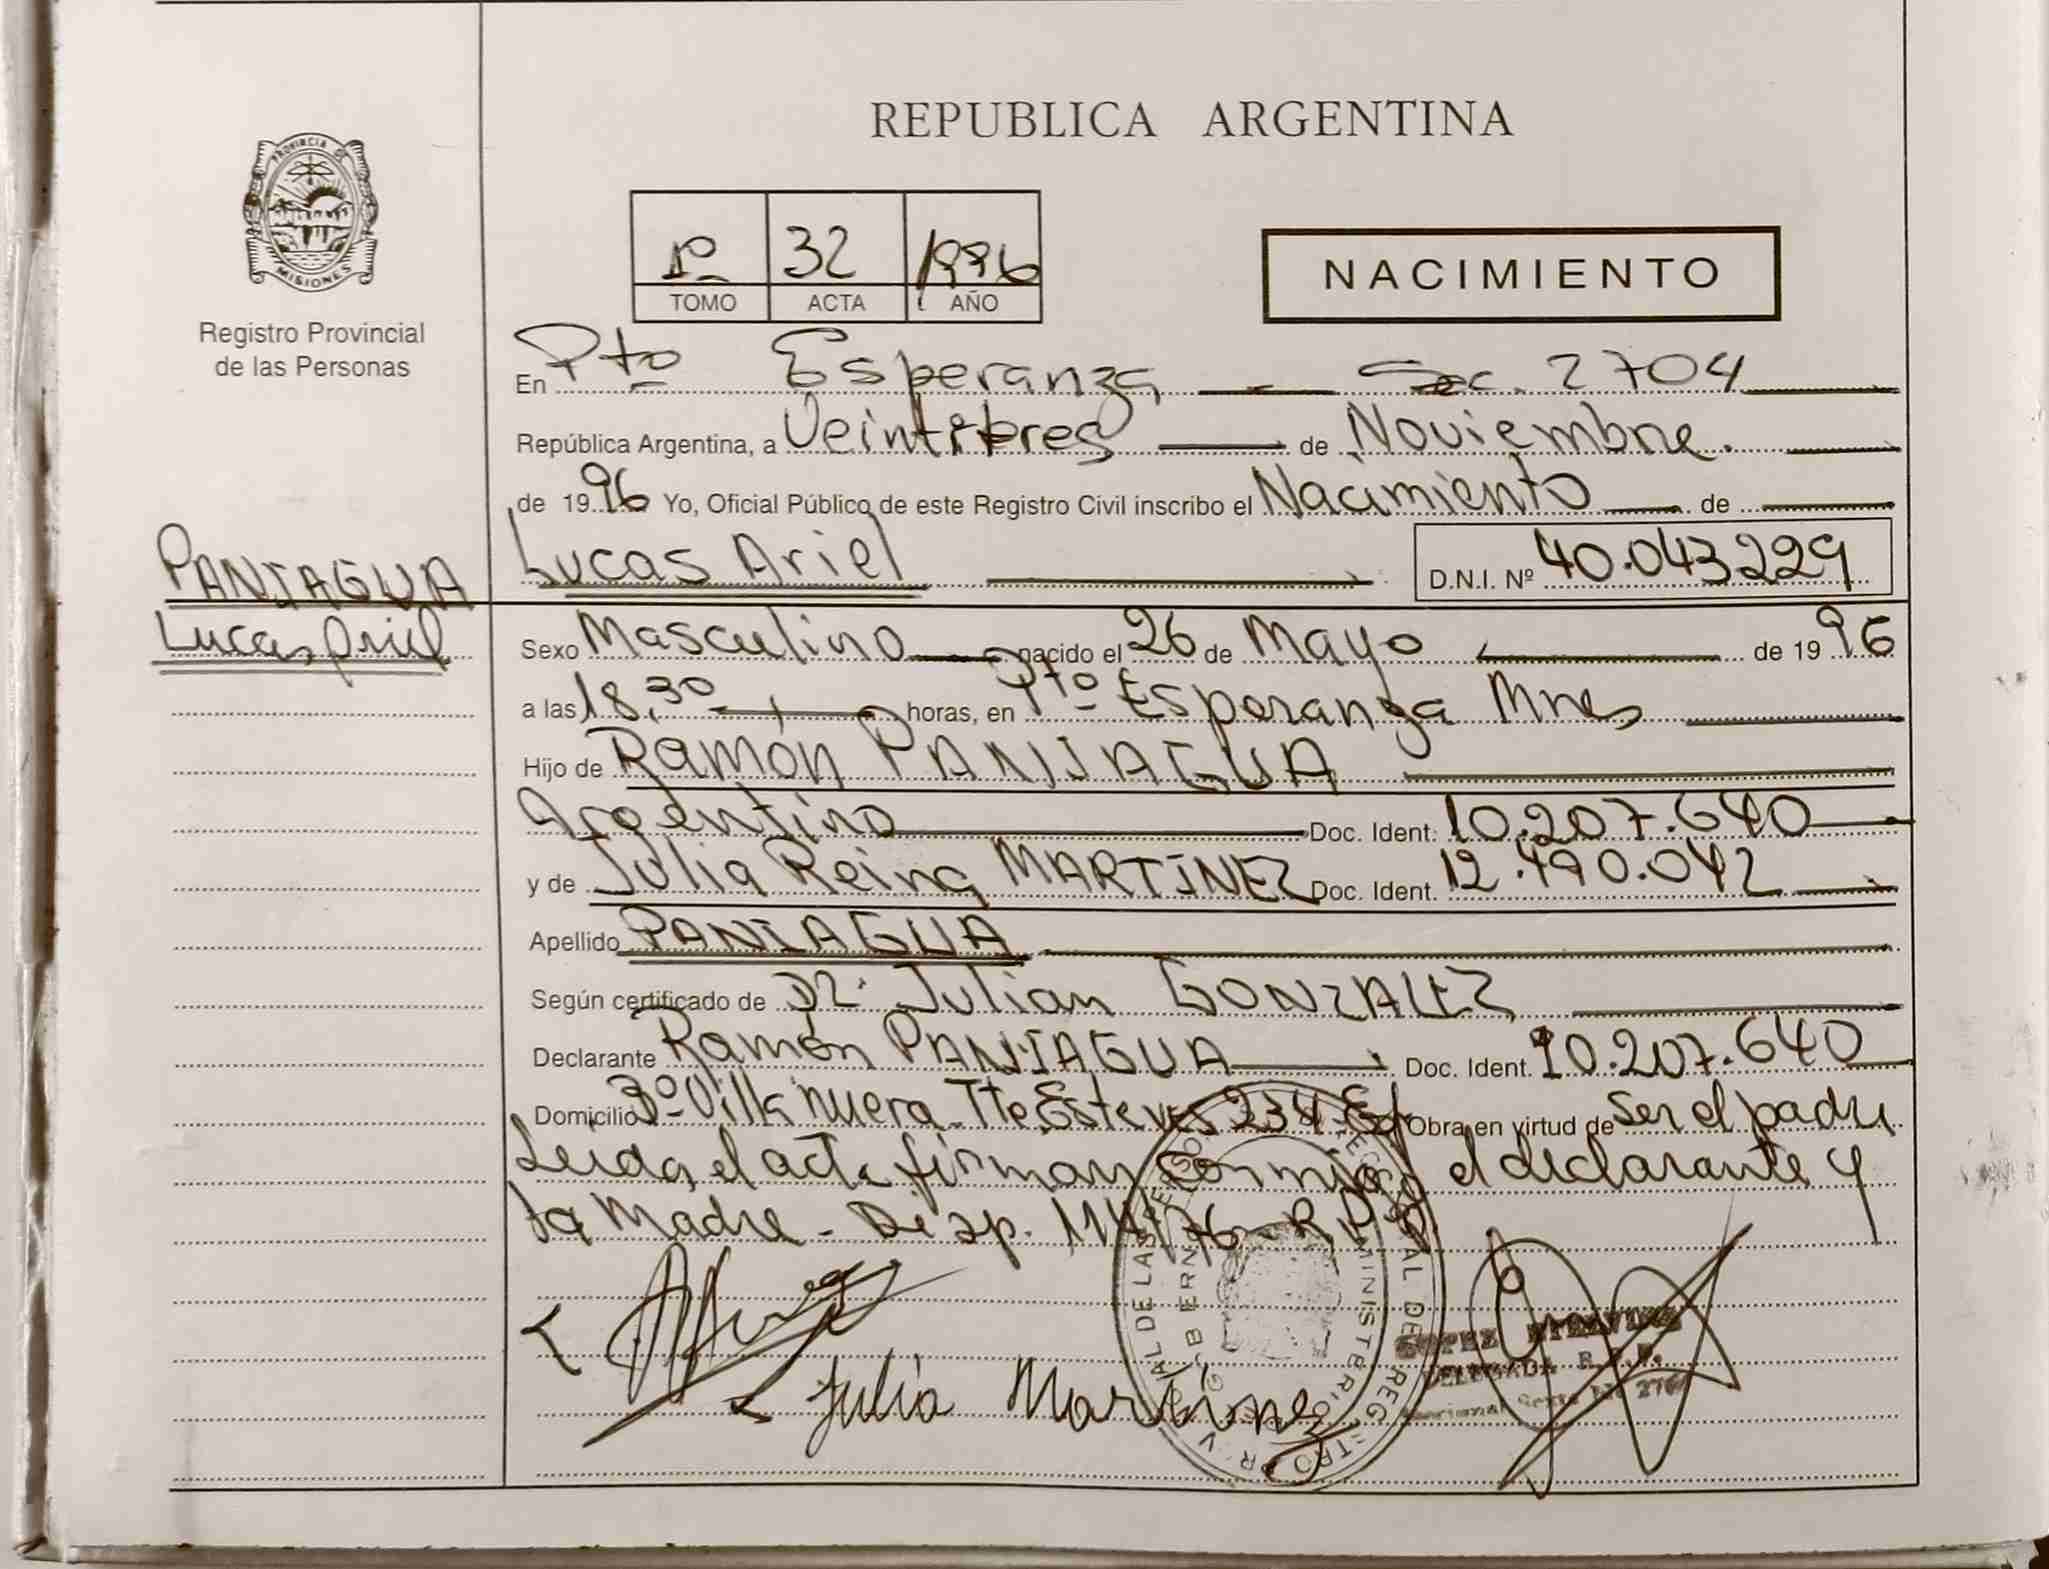 REPUBLICA ARGENTINA
PROVINCIA DE
MISIONES
Registro Provincial
de las Personas
1º 32 1996
TOMO ACTA AÑO
NACIMIENTO
En Pto Esperanza Sec. 2704
República Argentina, a Veintitres de Noviembre.
de 1996 Yo, Oficial Público de este Registro Civil inscribo el Nacimiento de
Lucas Ariel D.N.I. Nº 40.043.229
PANIAGUA
Lucas Ariel
Sexo Masculino nacido el 26 de Mayo de 1996
a las 18,30 horas, en Pto Esperanza Mnes
Hijo de Ramón PANIAGUA
Argentino Doc. Ident. 10.207.640
y de Julia Reina MARTINEZ Doc. Ident. 12.490.042
Apellido PANIAGUA
Según certificado de Dr. Julian GONZALEZ
Declarante Ramón PANIAGUA Doc. Ident. 10.207.640
Domicilio Bº Villa nueva Tte Esteves 234 Obra en virtud de ser el padre
Leida el acta firman conmigo el declarante y
la Madre - Disp. 114/76 - R.P.P.
Julia Martinez
DELEGADA R.P.P.